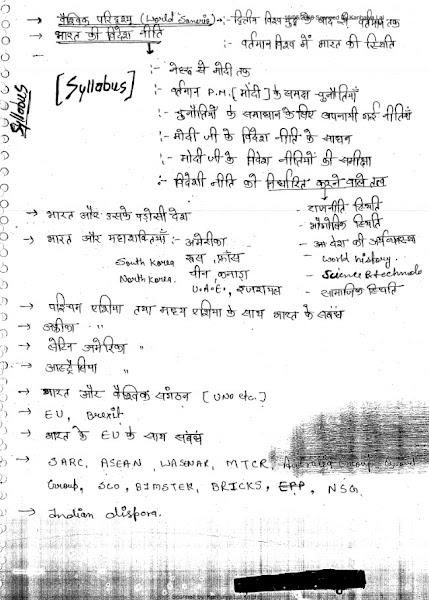 → वैश्विक परिदृश्य (World Scenerio) :- द्वितीय विश्व युद्ध के बाद से वर्तमान तक
→ भारत की विदेश नीति
:- वर्तमान विश्व में भारत की स्थिति
:- नेहरू से मोदी तक
[Syllabus]
Syllabus
:- वर्तमान P.M. [मोदी] के समक्ष चुनौतियाँ
:- चुनौतियों के समाधान के लिए अपनायी गई नीतियाँ
:- मोदी जी के विदेश नीति के साधन
:- मोदी जी के विदेश नीतियों की समीक्षा
:- विदेशी नीति को निर्धारित करने वाले तत्व
- राजनीति स्थिति
→ भारत और उसके पड़ोसी देश
- भौगोलिक स्थिति
→ भारत और महाशक्तियाँ :- अमेरिका
- उस देश की अर्थव्यवस्था
South Korea रूस, फ्राँस
- World history.
North Korea. चीन कनाडा
- Science & technolo
U.A.E, इजरायल
- सामाजिक स्थिति
→ पश्चिम एशिया तथा मध्य एशिया के साथ भारत के संबंध
→ अफ्रीका " "
→ लैटिन अमेरिका "
→ आस्ट्रेलिया "
→ भारत और वैश्विक संगठन [UNO etc.)
→ EU, Brexit
→ भारत के EU के साथ संबंध
SARC, ASEAN, WASNAR, MTCR, Australia Group
Group, SCO, BIMSTER, BRICKS, EPP, NSG.
→ Indian dispora.